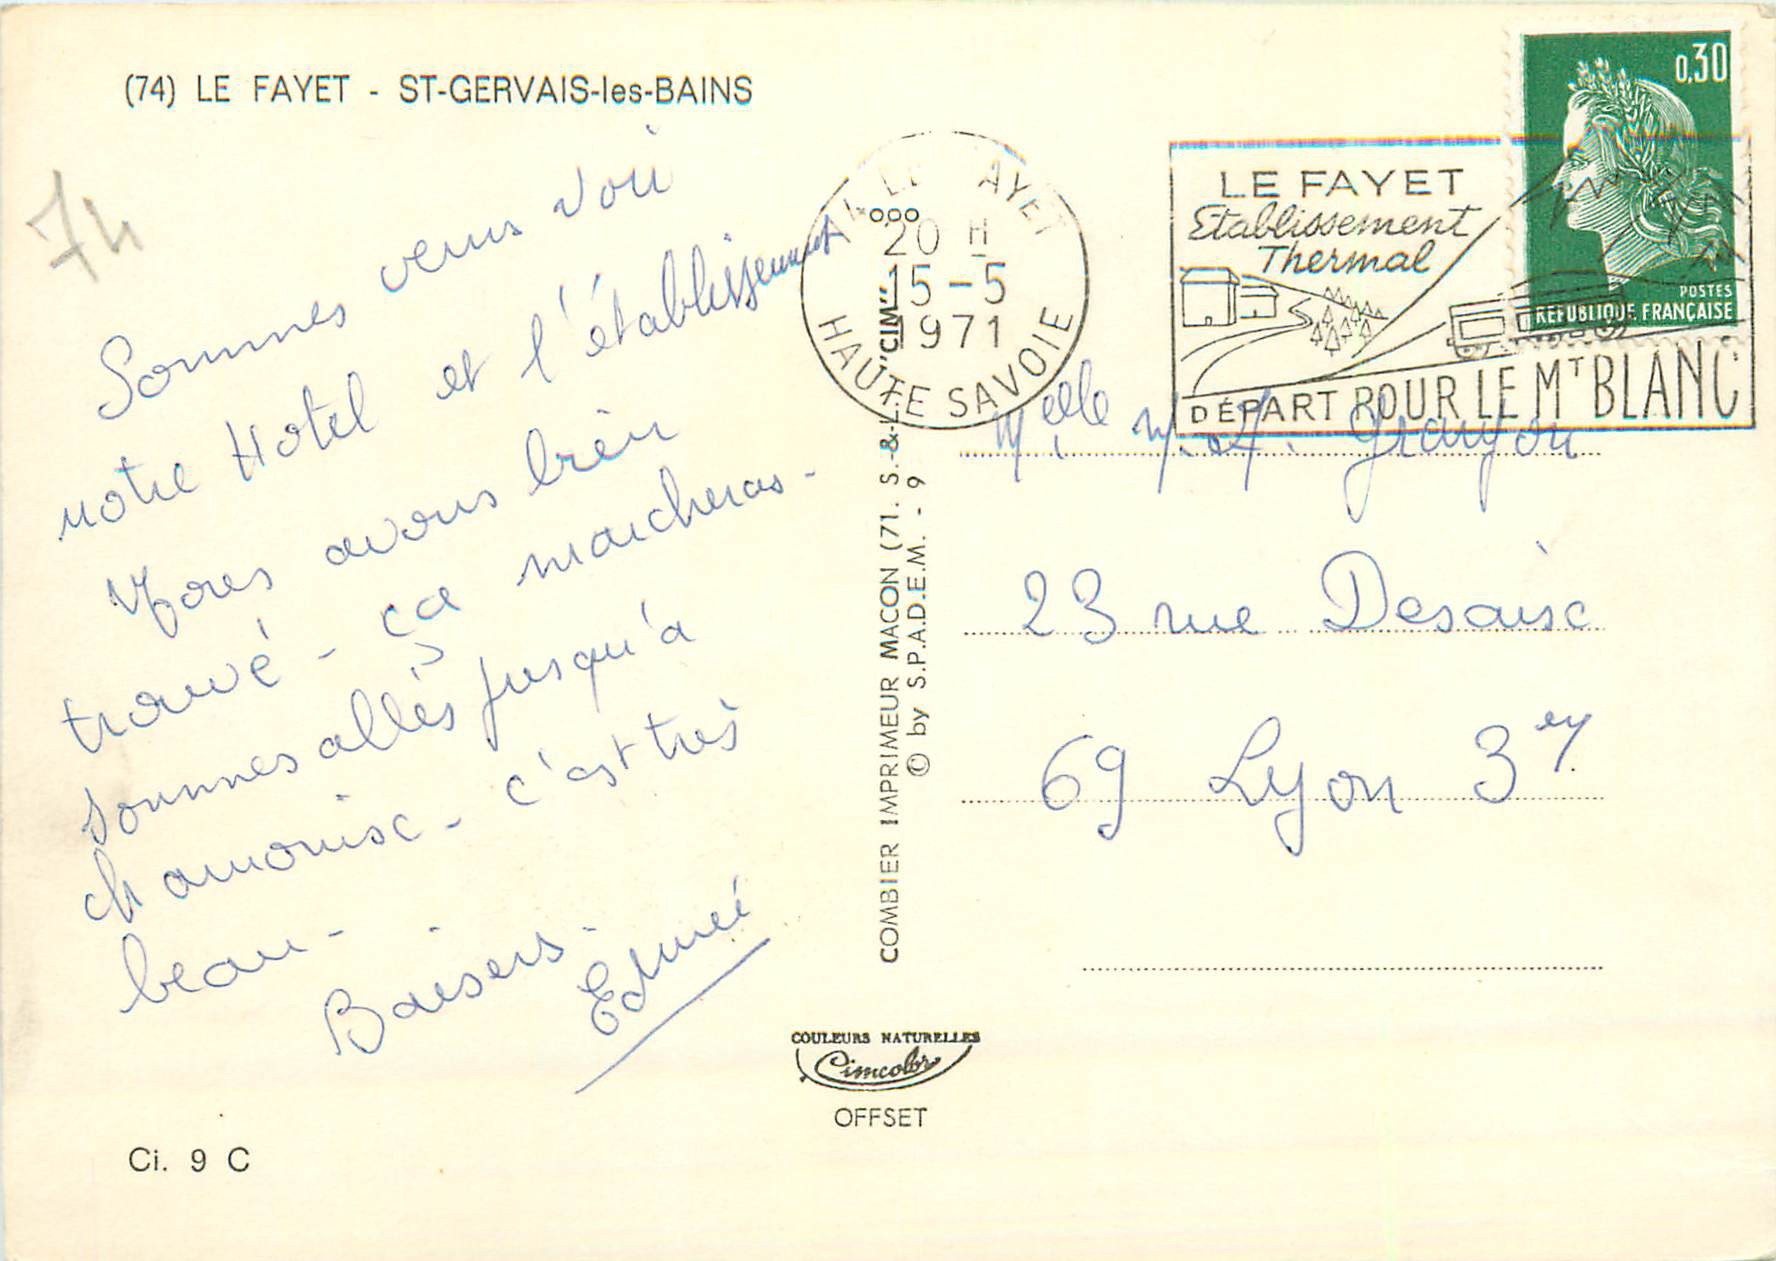 (74) LE FAYET - ST-GERVAIS-les-BAINS
74
Sommes venus voir
notre Hotel et l'établissement
Nous avons bien
trouvé - ça marchera -
sommes allés jusqu'à
chamonix - c'est très
beau -
Baisers -
Edmée
Ci. 9 C
LE FAYET
20 H
15-5
1971
HAUTE SAVOIE
LE FAYET
Etablissement
Thermal
DÉPART POUR LE MT BLANC
0,30
POSTES
REPUBLIQUE FRANÇAISE
COMBIER IMPRIMEUR MACON (71. S.-&-L.) "CIM"
© by S.P.A.D.E.M. - 9
Melle M. A.
23 rue Desaix
69 Lyon 3ey
COULEURS NATURELLES
Cimcolor
OFFSET